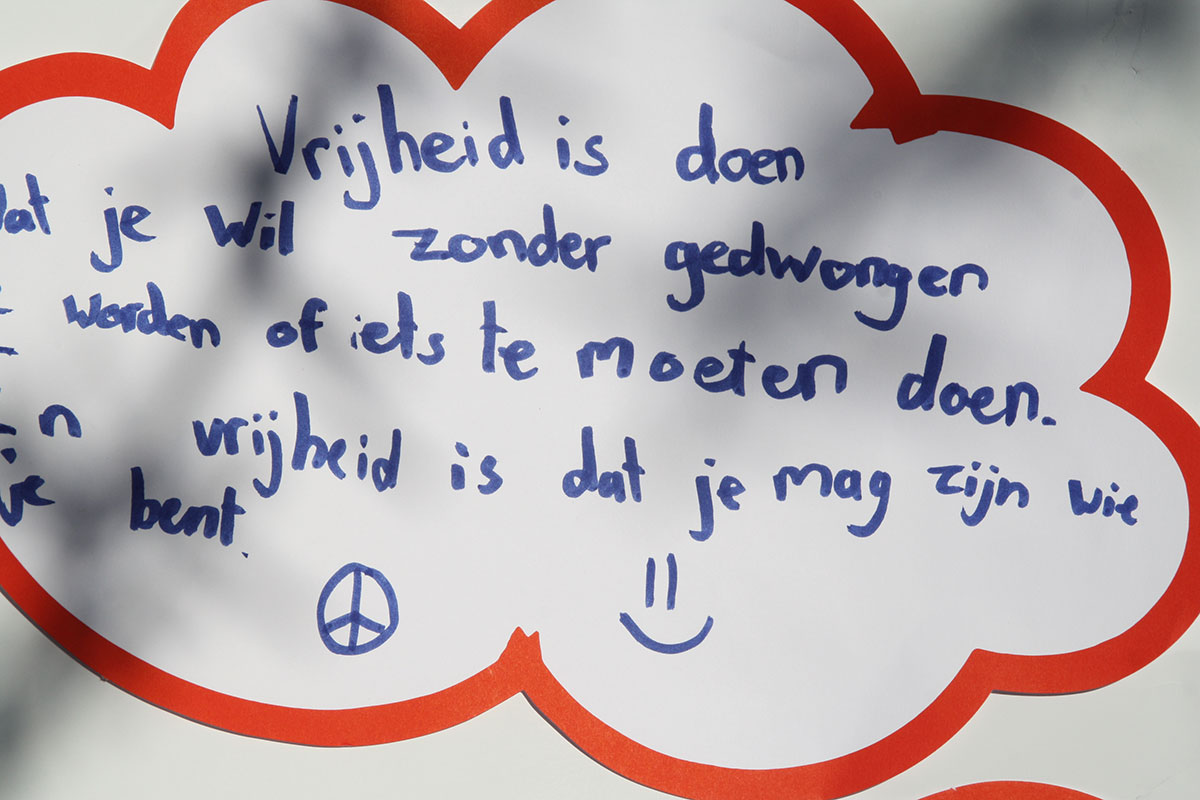 Vrijheid is doen
dat je wil zonder gedwongen
te worden of iets te moeten doen.
En vrijheid is dat je mag zijn wie
je bent.